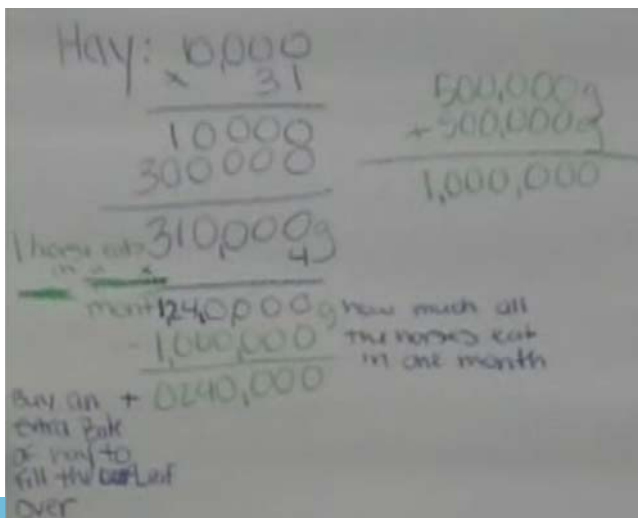 Hay: 10,000
x 31
10000
300000
310,000g
1 horse eats
in a
x 4
month 1240,000g how much all
the horses eat
in one month
- 1,000,000
+ 0240,000
Buy an
extra Bale
of hay to
fill the Left
over
500,000g
+500,000g
1,000,000